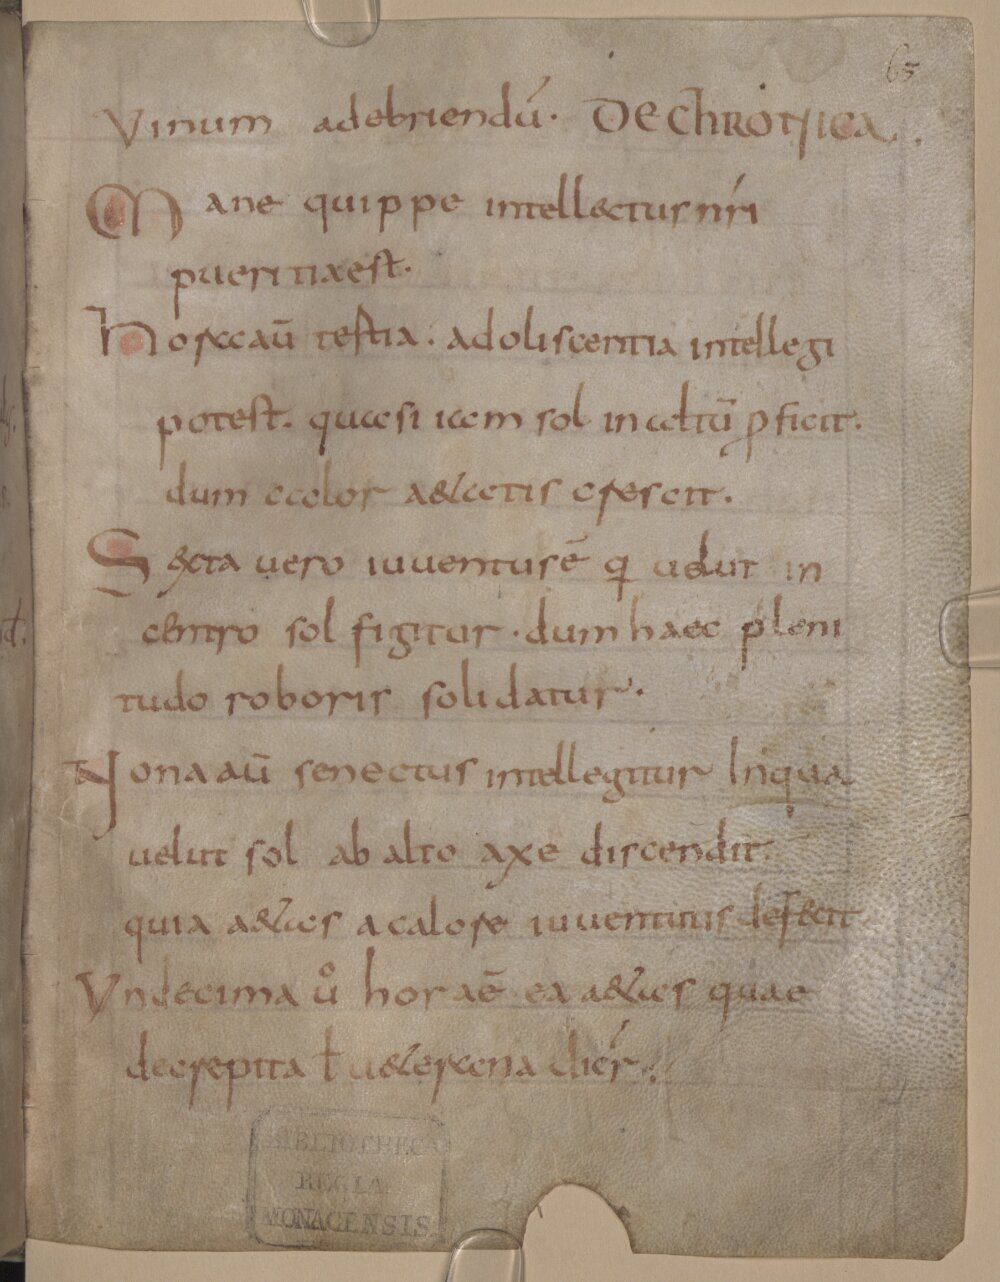 65
Vinum adebriendū. De Chronica.
Mane quippe intellectus nr̄i
pueritia est.
Hora au̅ tertia. adoliscentia intellegi
potest. quasi iam sol in altū ꝓficit.
dum calor aetatis crescit.
Sexta uero iuuentus ē q̨ uelut in
centro sol figitur. dum haec pleni
tudo roboris solidatur.
Nona au̅ senectus intellegitur In qua
uelut sol ab alto axe discendit.
quia aetas a calore iuuentutis defecit
Undecima ů hora ē ea aetas quae
decrepita ł ueterana dicr̄.
BIBLIOTHECA
REGIA
MONACENSIS